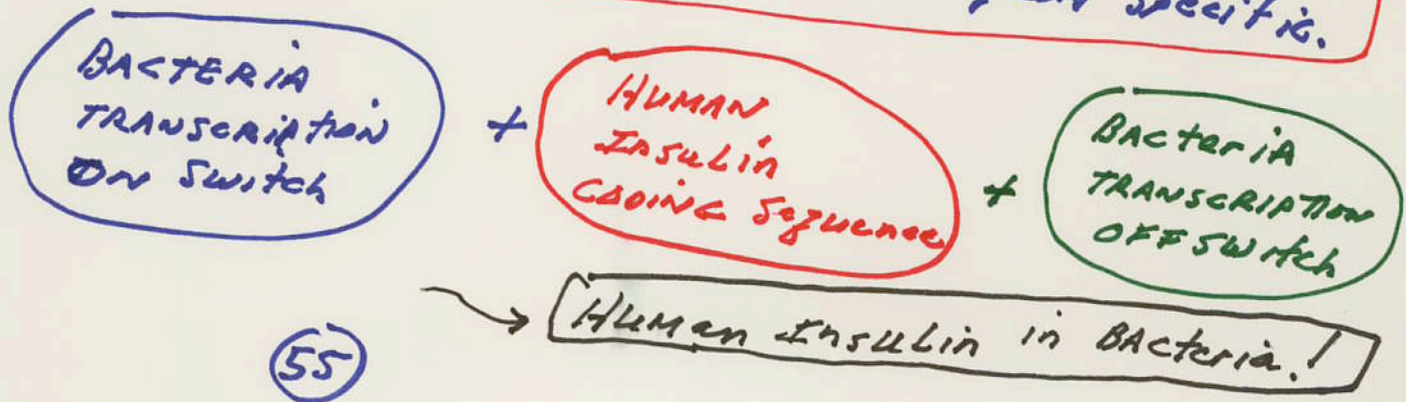 specific.
BACTERIA
TRANSCRIPTION
ON Switch
+
HUMAN
InSuLin
CODING Sequence
+
BACteriA
TRANSCRIPTION
OFF SWitch
HUMan InSuLin in BActeria!
55